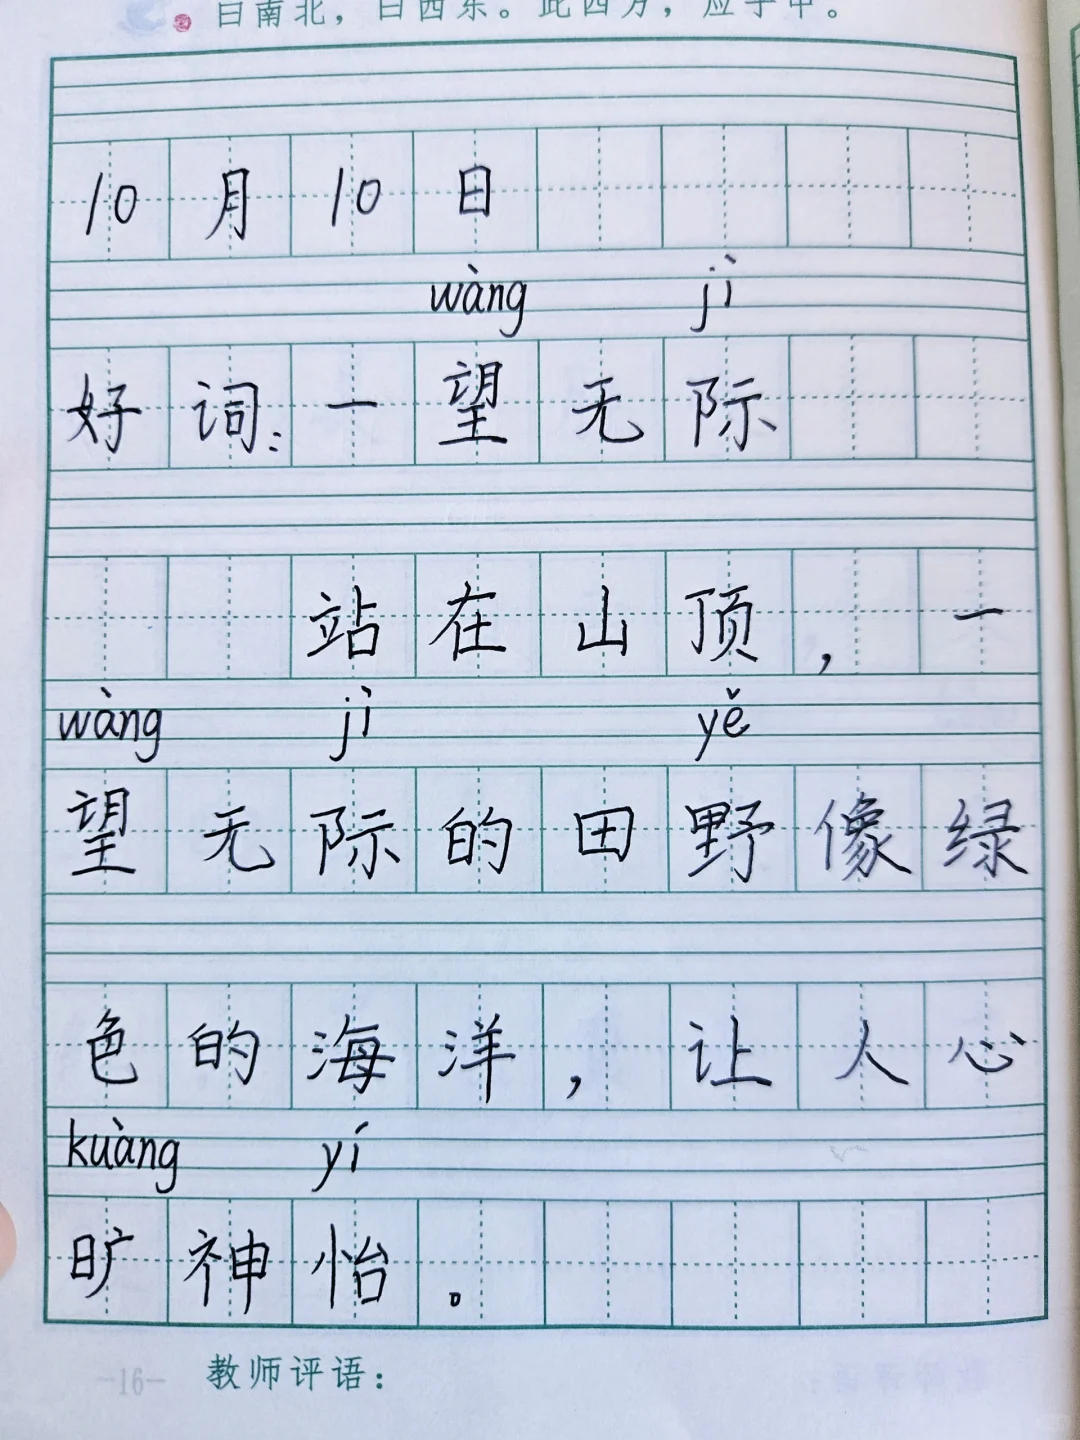 曰南北，曰西东。此四方，应乎中。
10月10日
wàng jì
好词：一望无际
站在山顶，一
wàng jì yě
望无际的田野像绿
色的海洋，让人心
kuàng yí
旷神怡。
-16- 教师评语：